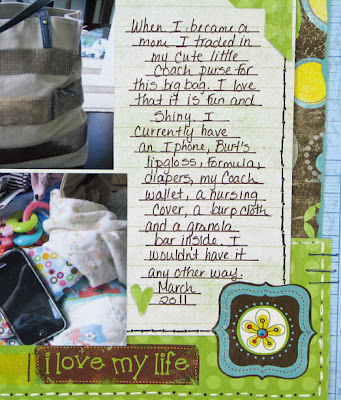 When I became a
mom I traded in
my cute little
Coach purse for
this big bag. I love
that it is fun and
shiny. I
currently have
an Iphone, Burt's
lipgloss, formula,
diapers, my Coach
wallet, a nursing
cover, a burp cloth
and a granola
bar inside. I
wouldn't have it
any other way.
March
2011
i love my life